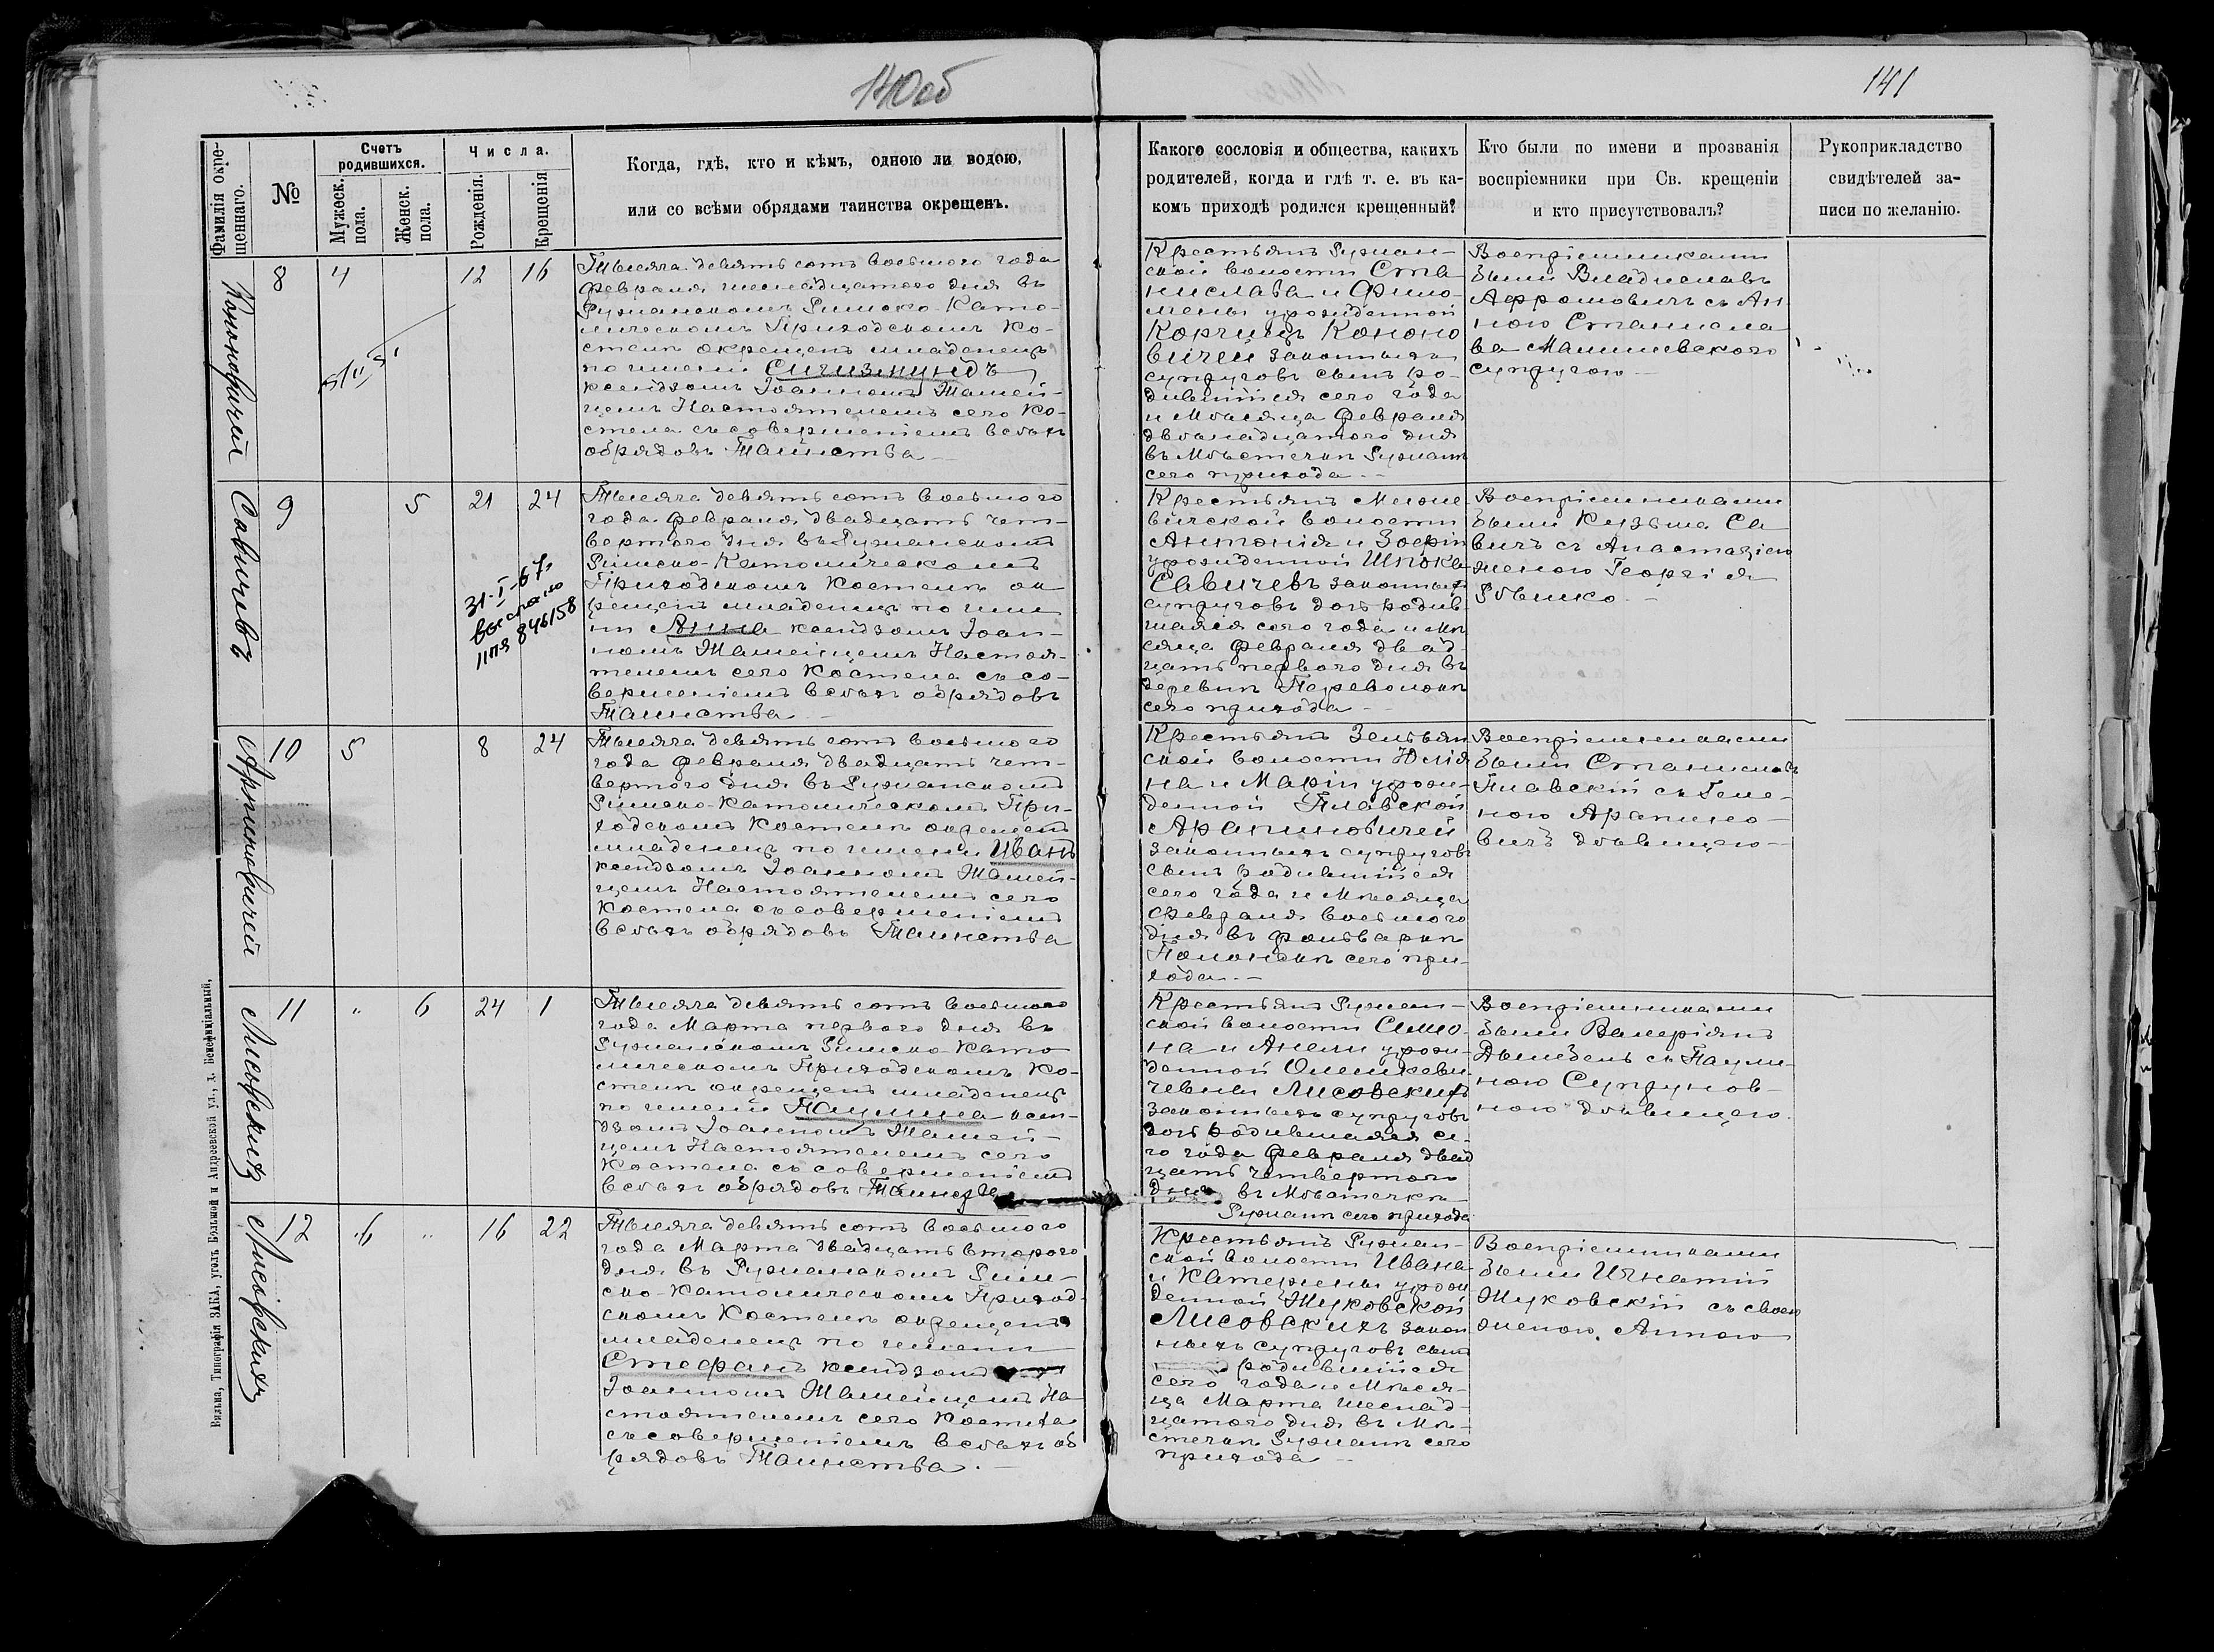 140 об
141
Фамилія окре-
щеннаго.
№
Счетъ
родившихся.
Мужеск.
пола.
Женск.
пола.
Числа.
Рожденія.
Крещенія
Когда, гдѣ, кто и кѣмъ, одною ли водою,
или со всѣми обрядами таинства окрещенъ.
Какого сословія и общества, какихъ
родителей, когда и гдѣ т. е. въ ка-
комъ приходѣ родился крещенный?
Кто были по имени и прозванія
воспріемники при Св. крещеніи
и кто присутствовалъ?
Рукоприкладство
свидѣтелей за-
писи по желанію.
Кононовичей
8
4
12
16
Тысяча девятьсотъ восьмого года
Февраля шеснадцатого дня въ
Ружанскомъ Римско-Като-
лическомъ Приходскомъ Ко-
стелѣ окрещенъ младенецъ
по имени Сигизмундъ
ксендзомъ Іоанномъ Жамей-
цемъ Настоятелемъ сего Ко-
стела съ совершеніемъ всѣхъ
обрядовъ Таинства
Крестьянъ Ружан-
ской волости Ста
нислава и Фило-
мены урожденной
Корчицъ Кононо
вичей законныхъ
супруговъ сынъ ро-
дившійся сего года
и Мѣсяца Февраля
двѣнадцатого дня
въ Мѣстечкѣ Ружанѣ
сего прихода
Воспріемниками
были Владиславъ
Афромовичъ съ Ан
ною Станисла
ва Малишевского
супругою
Савичевъ
9
5
21
24
31-I-67.
выслано
IIПЯ 846158
Тысяча девятьсотъ восьмого
года Февраля двадцать чет-
вертого дня въ Ружанскомъ
Римско-Католическомъ
Приходскомъ Костелѣ ок
рещенъ младенецъ по име
ни Анна ксендзомъ Іоан-
номъ Жамейцемъ Настоя-
телемъ сего Костела съ со-
вершеніемъ всѣхъ обрядовъ
Таинства
Крестьянъ Межи
вичской волости
Антонія и Зофіи
урожденной Шпока
Савичевъ законныхъ
супруговъ дочь родив-
шаяся сего года и Мѣ
сяца Февраля двад-
цать первого дня въ
деревнѣ Переволокѣ
сего прихода
Воспріемниками
были Кузьма Са
вичъ съ Анастазіею
женою Георгія
Рѣшко
Арпиновичей
10
5
8
24
Тысяча девятьсотъ восьмого
года Февраля двадцать чет-
вертого дня въ Ружанскомъ
Римско-Католическомъ При-
ходскомъ Костелѣ окрещенъ
младенецъ по имени Иванъ
ксендзомъ Іоанномъ Жамей-
цемъ Настоятелемъ сего
Костела съ совершеніемъ
всѣхъ обрядовъ Таинства
Крестьянъ Зельвян
ской волости Юлія
на и Маріи урож-
денной Плавской
Арапиновичей
законныхъ супруговъ
сынъ родившійся
сего года и Мѣсяца
Февраля восьмого
дня въ фольваркѣ
сего при-
хода
Воспріемниками
были Станиславъ
Плавскій съ Геле-
ною Арапино-
вичъ дѣвицею
Лисовскихъ
11
"
6
24
1
Тысяча девятьсотъ восьмого
года Марта первого дня въ
Ружанскомъ Римско-Като
лическомъ Приходскомъ Ко-
стелѣ окрещенъ младенецъ
по имени Паулина ксен-
дзомъ Іоанномъ Жамей-
цемъ Настоятелемъ сего
Костела съ совершеніемъ
всѣхъ обрядовъ Таинства
Крестьянъ Ружан-
ской волости Симо
на и Анели урож-
денной Олешкеви-
чевны Лисовскихъ
законныхъ супруговъ
дочь родившаяся се-
го года Февраля двад
цать четвертого
дня въ Мѣстечкѣ
Ружанѣ сего прихода
Воспріемниками
были Валеріянъ
съ Паули-
ною Супрунов-
ною дѣвицею.
Лисовскихъ
12
6
"
16
22
Тысяча девятьсотъ восьмого
года Марта двадцать второго
дня въ Ружанскомъ Рим-
ско-Католическомъ Приход-
скомъ Костелѣ окрещенъ
младенецъ по имени
Стефанъ ксендзомъ
Іоанномъ Жамейцемъ На-
стоятелемъ сего Костела
съ совершеніемъ всѣхъ об
рядовъ Таинства.
Крестьянъ Ружан-
ской волости Ивана
и Катерины урож
денной Жуковской
Лисовскихъ закон
ныхъ супруговъ сынъ
родившійся
сего года и Мѣся-
ца Марта шеснад-
цатого дня въ Мѣ-
стечкѣ Ружанѣ сего
прихода
Воспріемниками
были Игнатій
Жуковскій съ своею
женою Анною
Вильна, Типографія ЗАКА, уголъ Большой и Андреевской ул., д. Бенефиціальный.